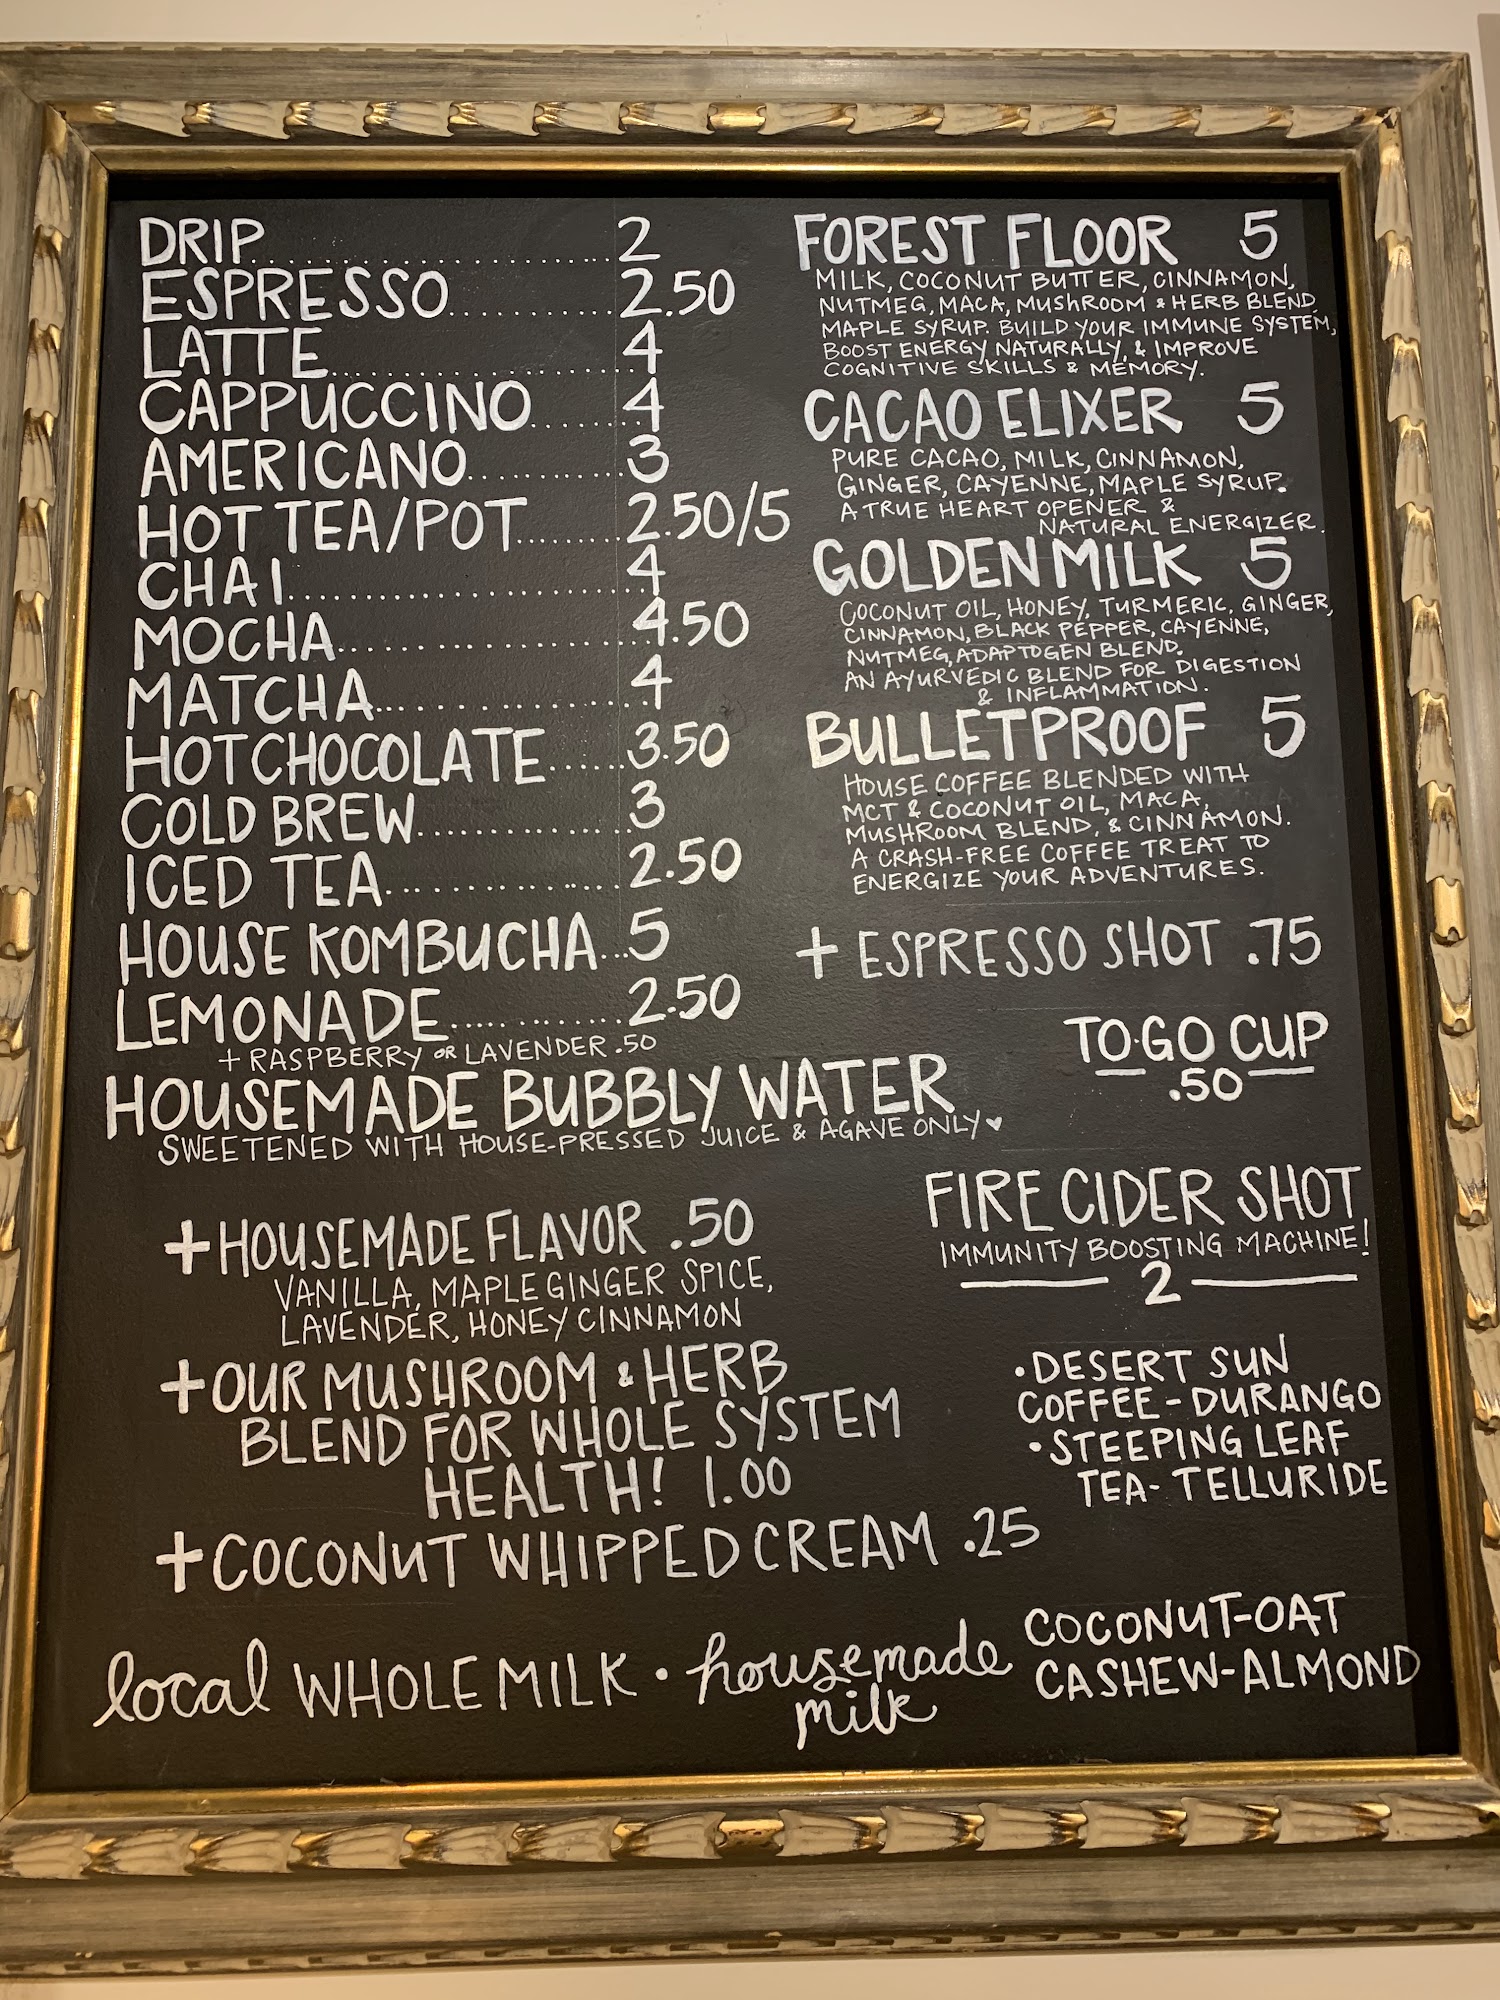 DRIP.......................2
ESPRESSO............2.50
LATTE......................4
CAPPUCCINO........4
AMERICANO..........3
HOT TEA/POT.......2.50/5
CHAI........................4
MOCHA...................4.50
MATCHA..................4
HOT CHOCOLATE.....3.50
COLD BREW.............3
ICED TEA.................2.50
HOUSE KOMBUCHA...5
LEMONADE..............2.50
+ RASPBERRY OR LAVENDER .50
HOUSEMADE BUBBLY WATER
SWEETENED WITH HOUSE-PRESSED JUICE & AGAVE ONLY ♥
+ HOUSEMADE FLAVOR .50
VANILLA, MAPLE GINGER SPICE,
LAVENDER, HONEY CINNAMON
+ OUR MUSHROOM & HERB
BLEND FOR WHOLE SYSTEM
HEALTH! 1.00
+ COCONUT WHIPPED CREAM .25
FOREST FLOOR 5
MILK, COCONUT BUTTER, CINNAMON,
NUTMEG, MACA, MUSHROOM & HERB BLEND,
MAPLE SYRUP. BUILD YOUR IMMUNE SYSTEM,
BOOST ENERGY NATURALLY, & IMPROVE
COGNITIVE SKILLS & MEMORY.
CACAO ELIXER 5
PURE CACAO, MILK, CINNAMON,
GINGER, CAYENNE, MAPLE SYRUP.
A TRUE HEART OPENER &
NATURAL ENERGIZER.
GOLDEN MILK 5
COCONUT OIL, HONEY, TURMERIC, GINGER,
CINNAMON, BLACK PEPPER, CAYENNE,
NUTMEG, ADAPTOGEN BLEND.
AN AYURVEDIC BLEND FOR DIGESTION
& INFLAMMATION.
BULLETPROOF 5
HOUSE COFFEE BLENDED WITH
MCT & COCONUT OIL, MACA,
MUSHROOM BLEND, & CINNAMON.
A CRASH-FREE COFFEE TREAT TO
ENERGIZE YOUR ADVENTURES.
+ ESPRESSO SHOT .75
TO·GO CUP
.50
FIRE CIDER SHOT
IMMUNITY BOOSTING MACHINE!
2
• DESERT SUN
COFFEE - DURANGO
• STEEPING LEAF
TEA - TELLURIDE
local WHOLE MILK • housemade
milk
COCONUT-OAT
CASHEW-ALMOND